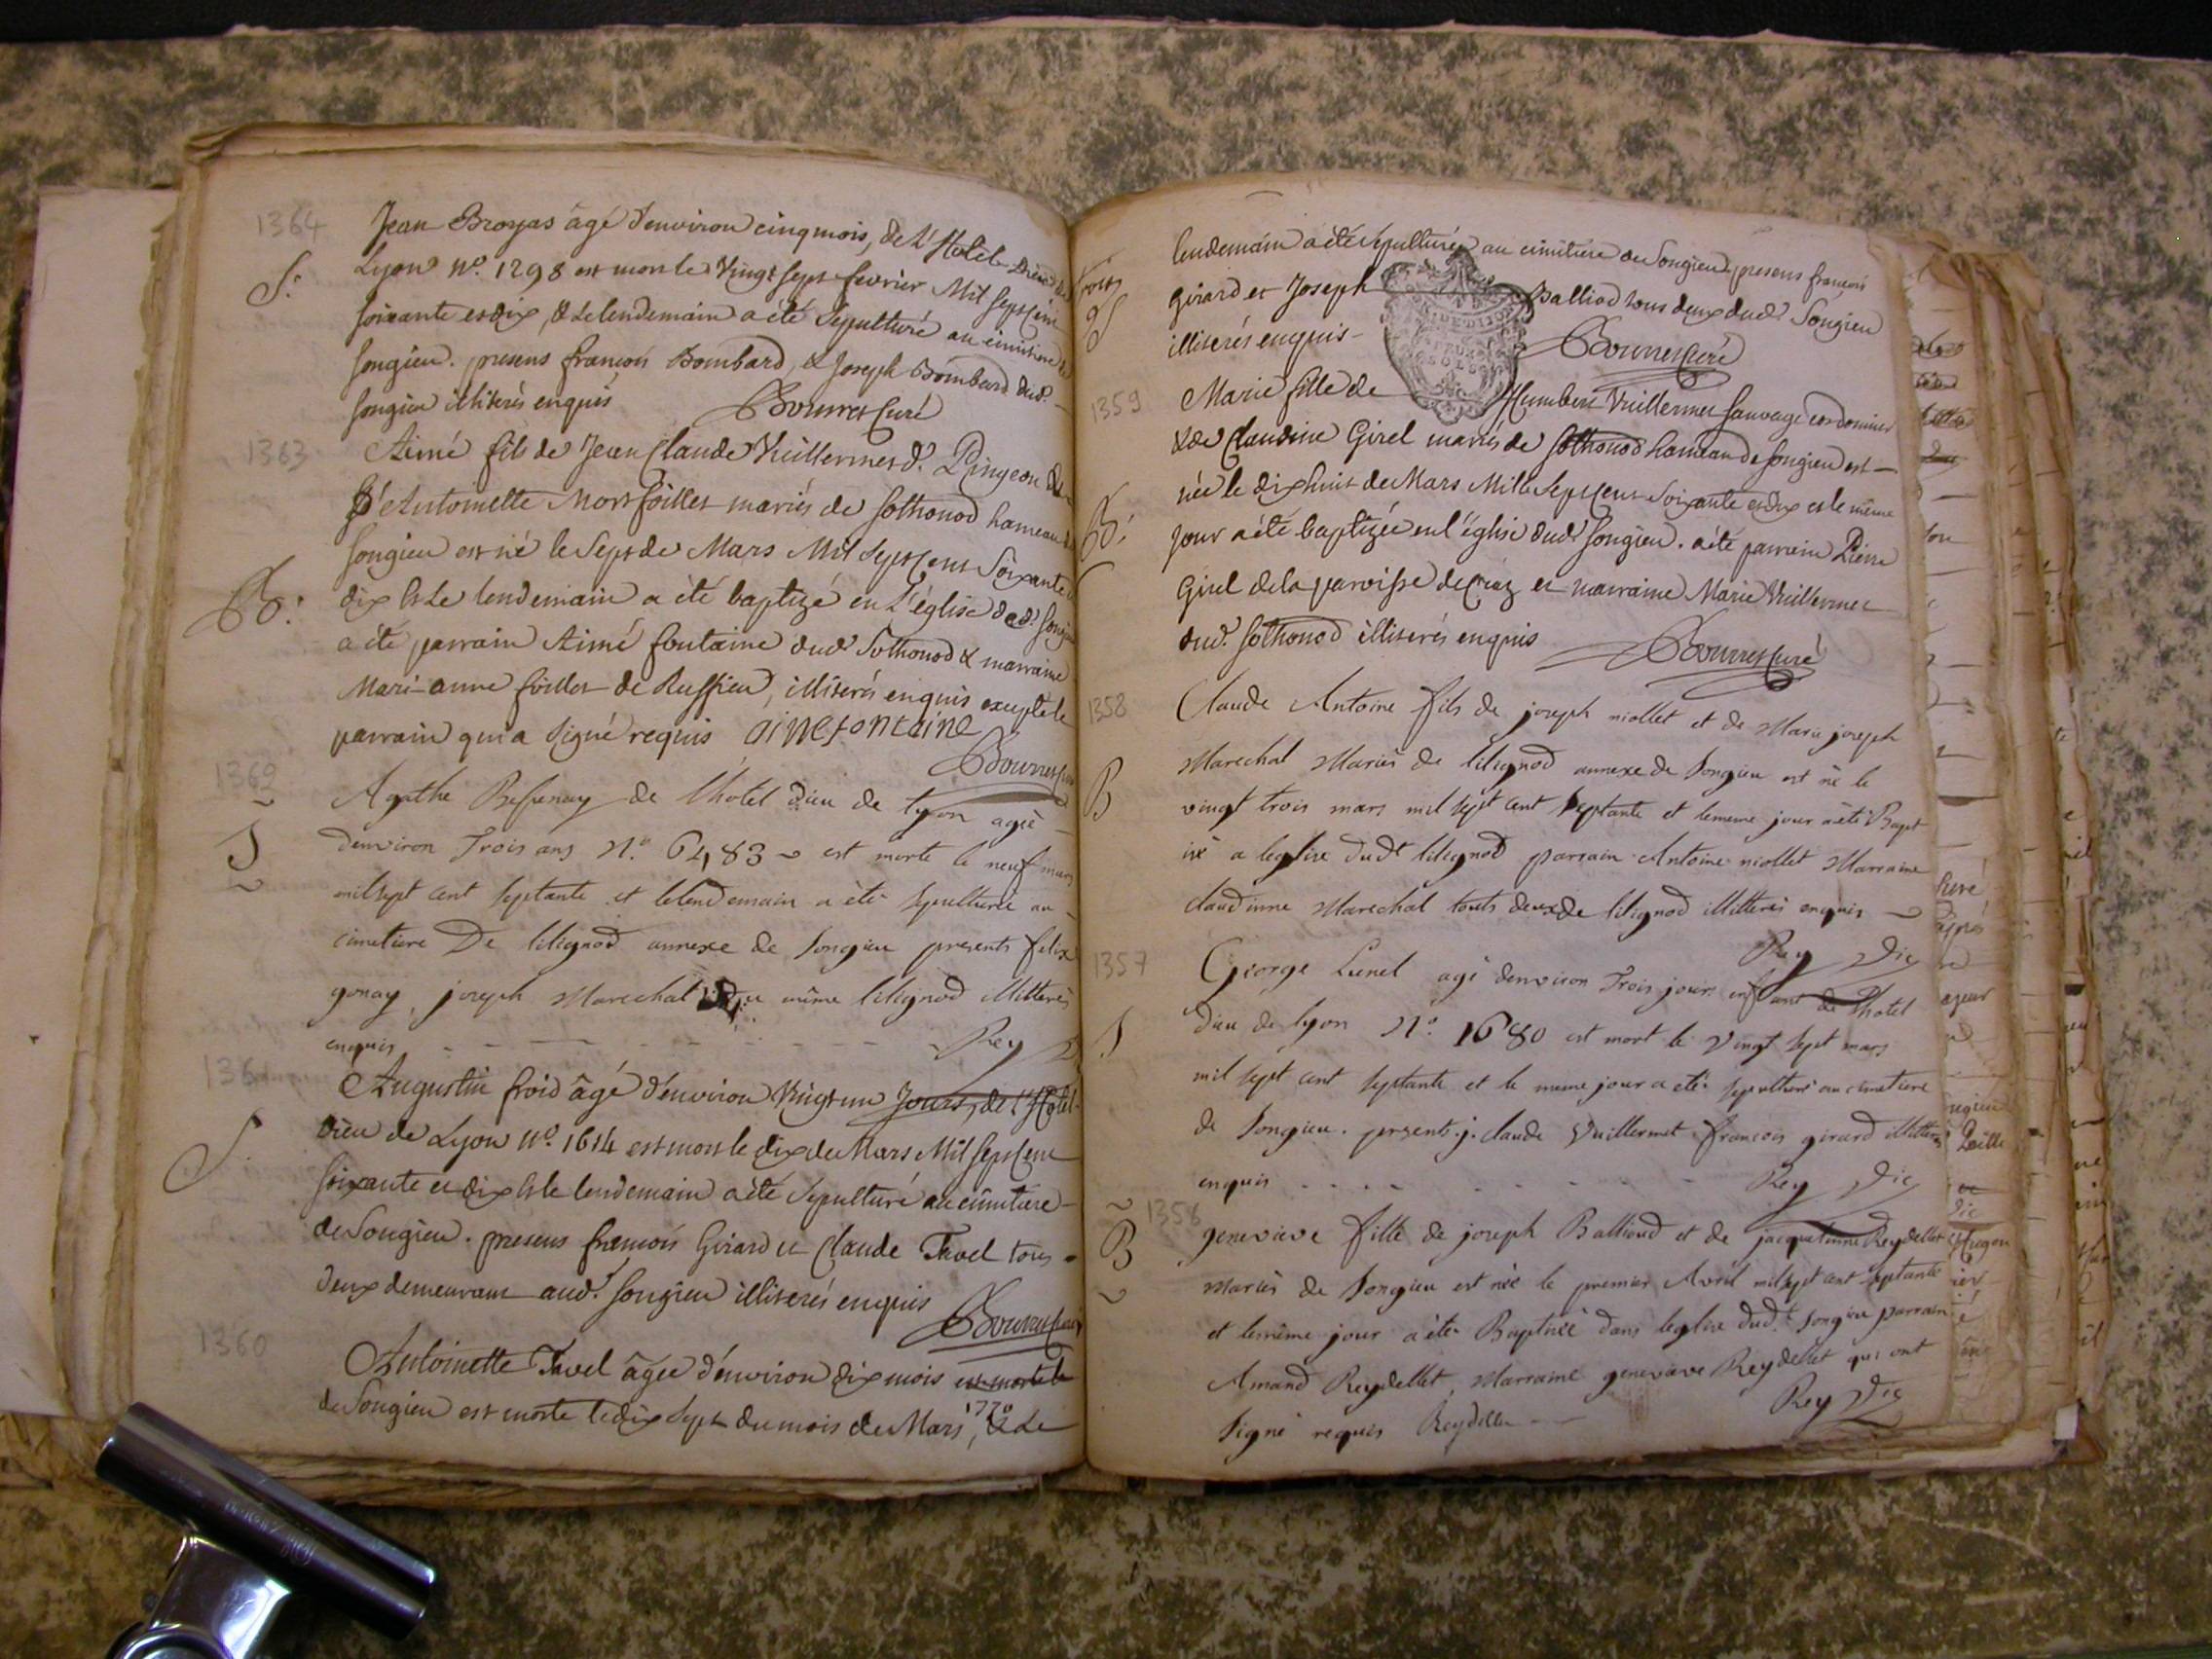 1364
Jean Broyas âgé d'environ cinq mois, de L'Hotel Dieu de
S.
Lyon N.º 1298 est mort le Vingt Sept fevrier Mil Sept Cent
soixante et dix, & le lendemain a été Sepulturé au cimitiere de
Songieu. presens françois Bombard, & Joseph Bombard dud.
Songieu illiterés enquis Bourret Curé
1363
Aimé fils de Jean Claude Vuillermet d.
d'Antoinette Montfoillet mariés de Sothonod hameau de
Songieu est né le Sept de Mars Mil Sept Cent Soixante
B:
dix & Le lendemain a été baptizé en L'église dud. Songieu
a été parrain Aimé fontaine dud. Sothonod & marraine
Mari-anne foillet de Ruffieu, illiterés enquis excepté le
parrain qui a Signé requis aime fontaine
Bourret Curé
1362
Agathe de l'hotel dieu de lyon agée
S
denviron Trois ans N.º 6483 est morte le neuf mars
mil sept cent septante et le lendemain a été sepulturée au
cimetiere De lilignod annexe de Songieu presents felix
gonay, joseph Marechal du même lilignod illitterés
enquis - - - - - - - - Rey
1361
Augustin froid âgé d'environ Vingt un Jours, de L'Hotel
S.
Dieu de Lyon N.º 1614 est mort le dix de Mars Mil Sept Cent
Soixante et dix & le lendemain a été Sepulturé au cimitiere
de Songieu. presens françois Girard et Claude Tavel tous
deux demeurant aud. Songieu illiterés enquis
Bourret Curé
1360
Antoinette Tavel âgée d'environ dix mois est morte le
de Songieu est morte le dix Sept du mois de Mars 1770, & Le
lendemain a été Sepulturée au cimitiere de Songieu presens françois
S
Girard et Joseph Balliod tous deux dud. Songieu
illiterés enquis - Bourret Curé
1359
Marie fille de Humbert Vuillermet Sauvage cordonnier
& de Claudine Girel mariés de Sothonod hameau de Songieu est
née le dix huit de Mars Mille Sept Cent Soixante et dix et le même
B:
jour a été baptizée en l'église dud. Songieu. a été parrain Pierre
Girel de la paroisse de et marraine Marie Vuillermet
dud. Sothonod illiterés enquis Bourret Curé
1358
Claude Antoine fils de joseph niollet et de Marie joseph
Marechal Mariés de lilignod annexe de Songieu est né le
B
vingt trois mars mil sept cent septante et le meme jour a été Bapt
isé a leglise dudt lilignod parrain Antoine niollet Marraine
claudinne Marechal touts deux de lilignod illitterés enquis
Rey Vic
1357
George Lunel agé denviron Trois jours enfant de l'hotel
S
dieu de lyon N.º 1680 est mort le Vingt sept mars
mil sept cent septante et le meme jour a été sepulturé au cimetiere
de Songieu. presents j. claude Vuillermet françois girard illitterés
enquis - - - - - - - - Rey Vic
1356
B
genevieve fille de joseph Ballioud et de jacquetienne Reydellet
Mariés de Songieu est née le premier Avril mil sept cent septante
et le même jour a été Baptisée dans leglise dud.t Songieu parrain
Amand Reydellet, Marraine genevieve Reydellet qui ont
Signé requis Reydellet - - Rey Vic